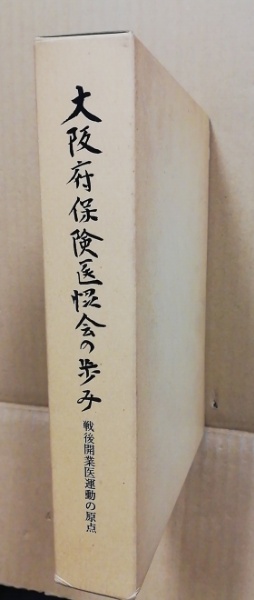 大阪府保険医協会の歩み
戦後開業医運動の原点